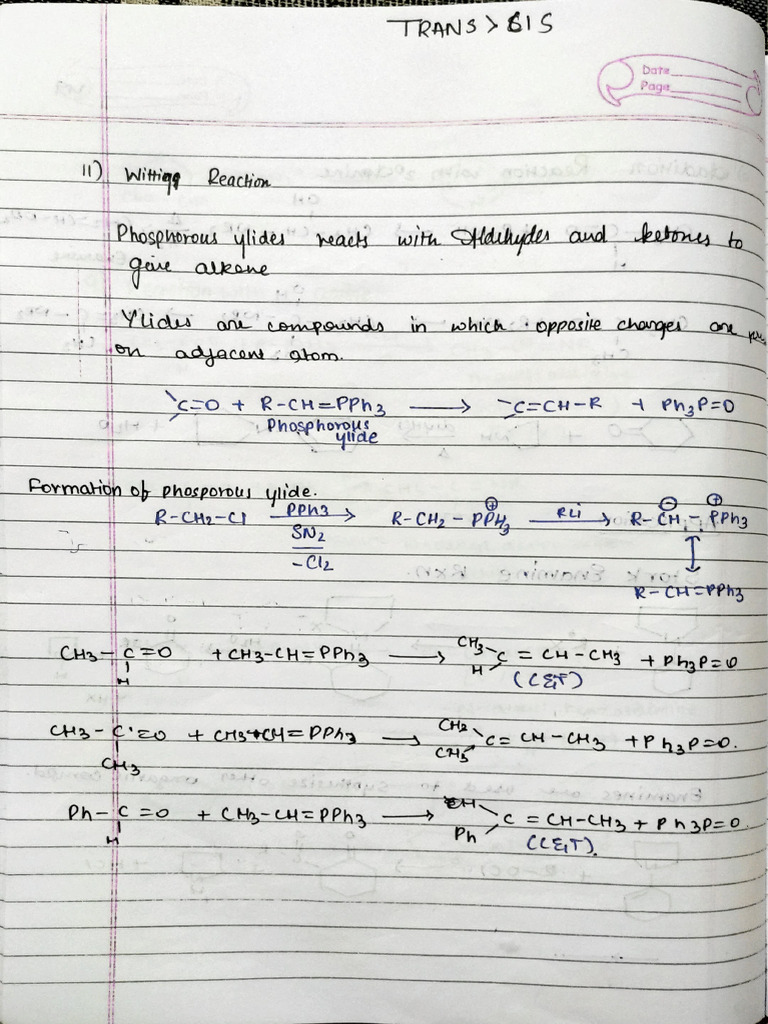 TRANS > CIS
Date
Page
11) Wittig Reaction
Phosphorous ylides reacts with Aldehydes and ketones to
give alkene
Ylides are compounds in which opposite charges are
on adjacent atom.
C=O + R-CH=PPh3 → C=CH-R + Ph3P=O
Phosphorous
ylide
Formation of phosporous ylide.
R-CH2-Cl PPh3 → R-CH2-PPH3 RLi → R-CH-PPh3
⊕ ⊖ ⊕
SN2
-Cl2
R-CH=PPh3
CH3-C=O + CH3-CH=PPh3 → CH3 C=CH-CH3 + Ph3P=O
H H (C&T)
CH3-C=O + CH3-CH=PPh3 → CH3 C=CH-CH3 + Ph3P=O.
CH3 CH3
Ph-C=O + CH3-CH=PPh3 → C=CH-CH3 + Ph3P=O
H Ph (C&T).